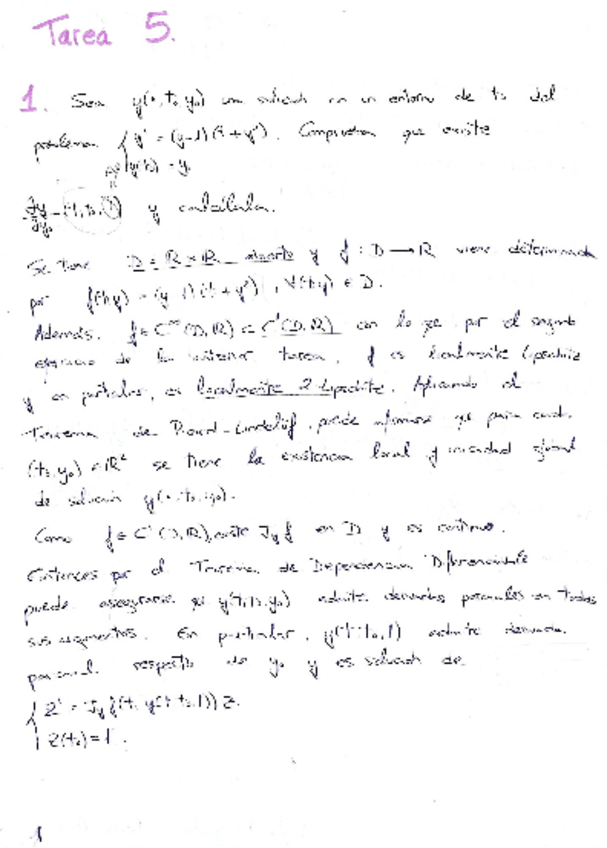 Tarea 5.
1. Sea y(·, t₀, y₀) una solución en un entorno de t₀ del
problema { y' = (y-1)(t²+y²). Comprueban que existe
y(t₀) = y₀
∂y/∂y₀ (t, t₀, 1) y calcularla.
Se tiene D = ℝ × ℝ abierto y f : D → ℝ viene determinada
por f(t,y) = (y-1)(t²+y²), ∀(t,y) ∈ D.
Además, f ∈ C^∞(D,ℝ) ⊂ C¹(D,ℝ) con lo que por el segundo
ejercicio de la anterior tarea, f es localmente lipschitz
y en particular, es localmente 2-lipschitz. Aplicando el
Teorema de Picard-Lindelöf, puede afirmarse que para cada
(t₀, y₀) ∈ ℝ² se tiene la existencia local y unicidad global
de solución y(·, t₀, y₀).
Como f ∈ C¹(D,ℝ), existe J_y f en D y es continua.
Entonces por el Teorema de Dependencia Diferenciable
puede asegurarse que y(t, t₀, y₀) admite derivadas parciales en todos
sus argumentos. En particular, y(t, t₀, 1) admite derivada
parcial respecto de y₀ y es solución de
{ Z' = J_y f(t, y(t, t₀, 1)) Z.
Z(t₀) = 1.
1